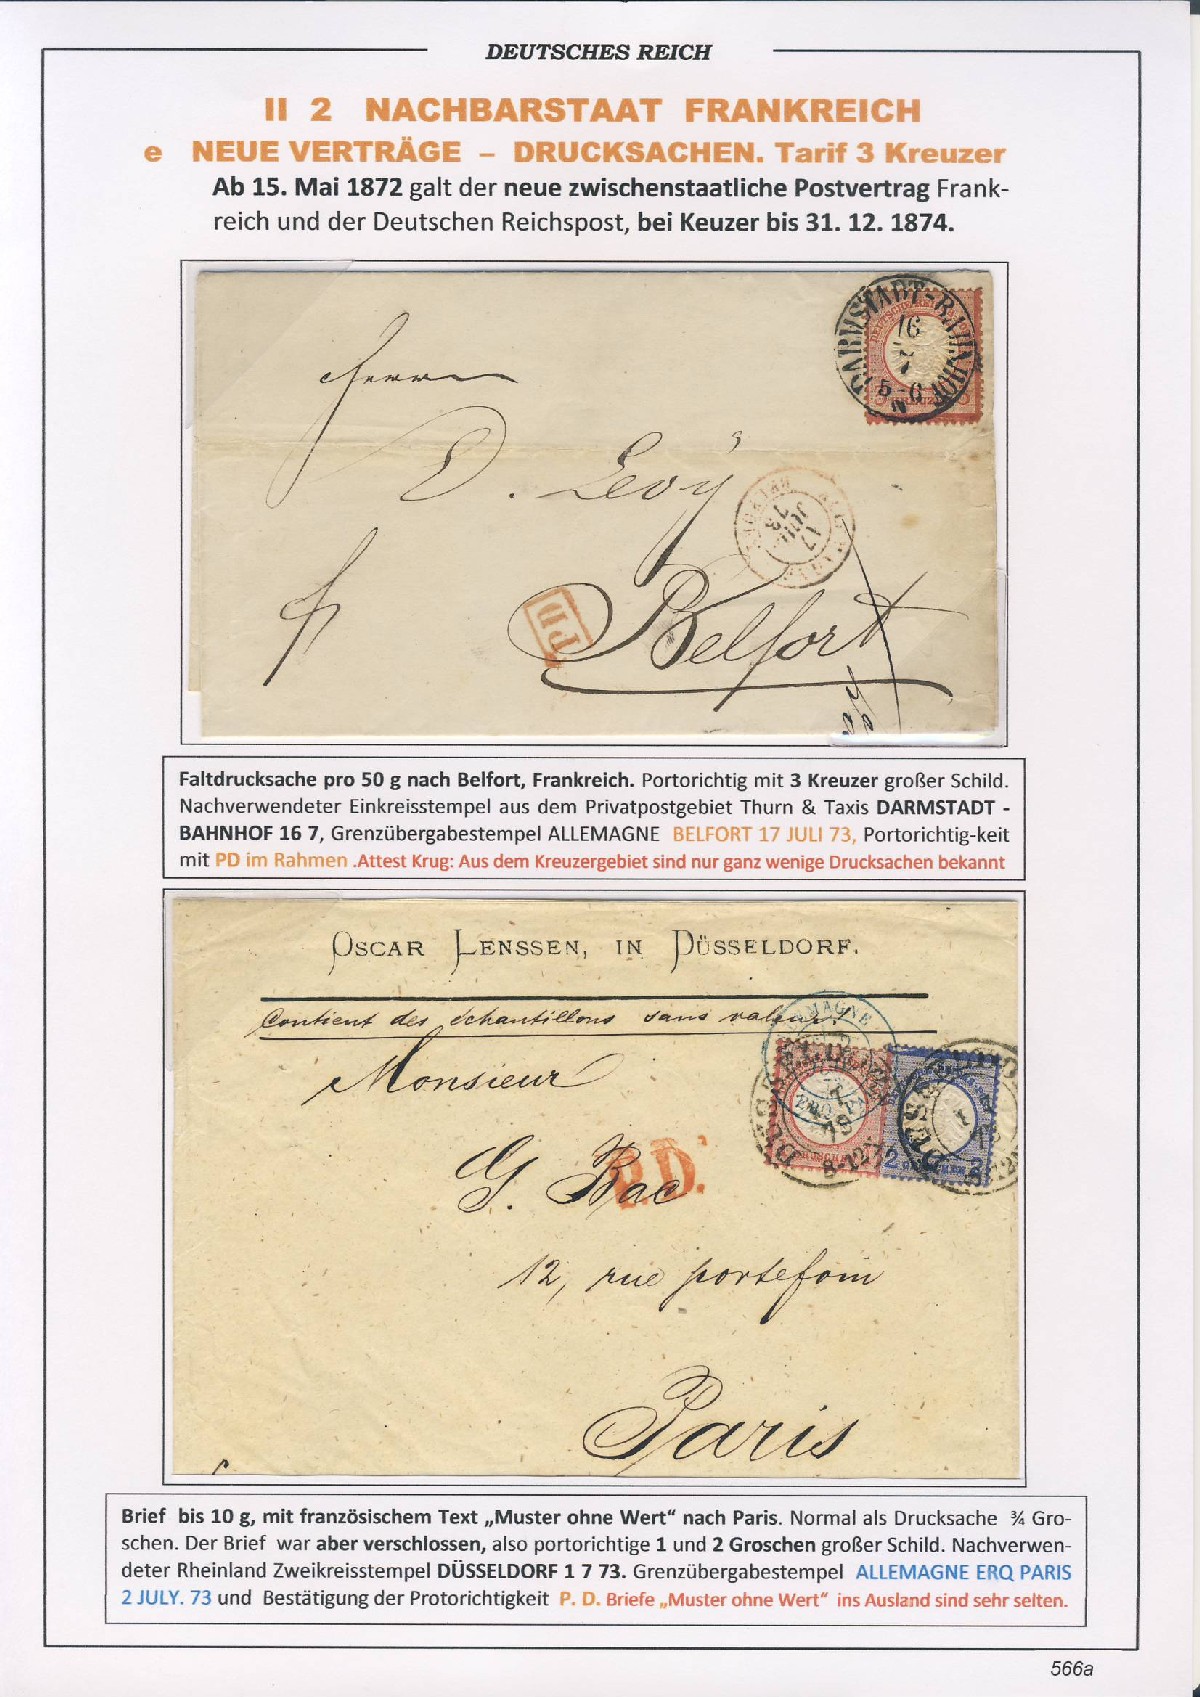 DEUTSCHES REICH
II 2 NACHBARSTAAT FRANKREICH
e NEUE VERTRÄGE – DRUCKSACHEN. Tarif 3 Kreuzer
Ab 15. Mai 1872 galt der neue zwischenstaatliche Postvertrag Frank-
reich und der Deutschen Reichspost, bei Keuzer bis 31. 12. 1874.
DARMSTADT-BAHNHOF
16
7
5-6 N
Herrn
D. Levy
17
JUIL
73
PD
Belfort
Faltdrucksache pro 50 g nach Belfort, Frankreich. Portorichtig mit 3 Kreuzer großer Schild.
Nachverwendeter Einkreisstempel aus dem Privatpostgebiet Thurn & Taxis DARMSTADT -
BAHNHOF 16 7, Grenzübergabestempel ALLEMAGNE BELFORT 17 JULI 73, Portorichtig-keit
mit PD im Rahmen .Attest Krug: Aus dem Kreuzergebiet sind nur ganz wenige Drucksachen bekannt
OSCAR LENSSEN, IN DÜSSELDORF.
Contient des échantillons sans valeur!
Monsieur
G. Bac
P.D.
2 GROSCHEN 2
12, rue portefoin
Paris
Brief bis 10 g, mit französischem Text „Muster ohne Wert“ nach Paris. Normal als Drucksache ¾ Gro-
schen. Der Brief war aber verschlossen, also portorichtige 1 und 2 Groschen großer Schild. Nachverwen-
deter Rheinland Zweikreisstempel DÜSSELDORF 1 7 73. Grenzübergabestempel ALLEMAGNE ERQ PARIS
2 JULY. 73 und Bestätigung der Protorichtigkeit P. D. Briefe „Muster ohne Wert“ ins Ausland sind sehr selten.
566a